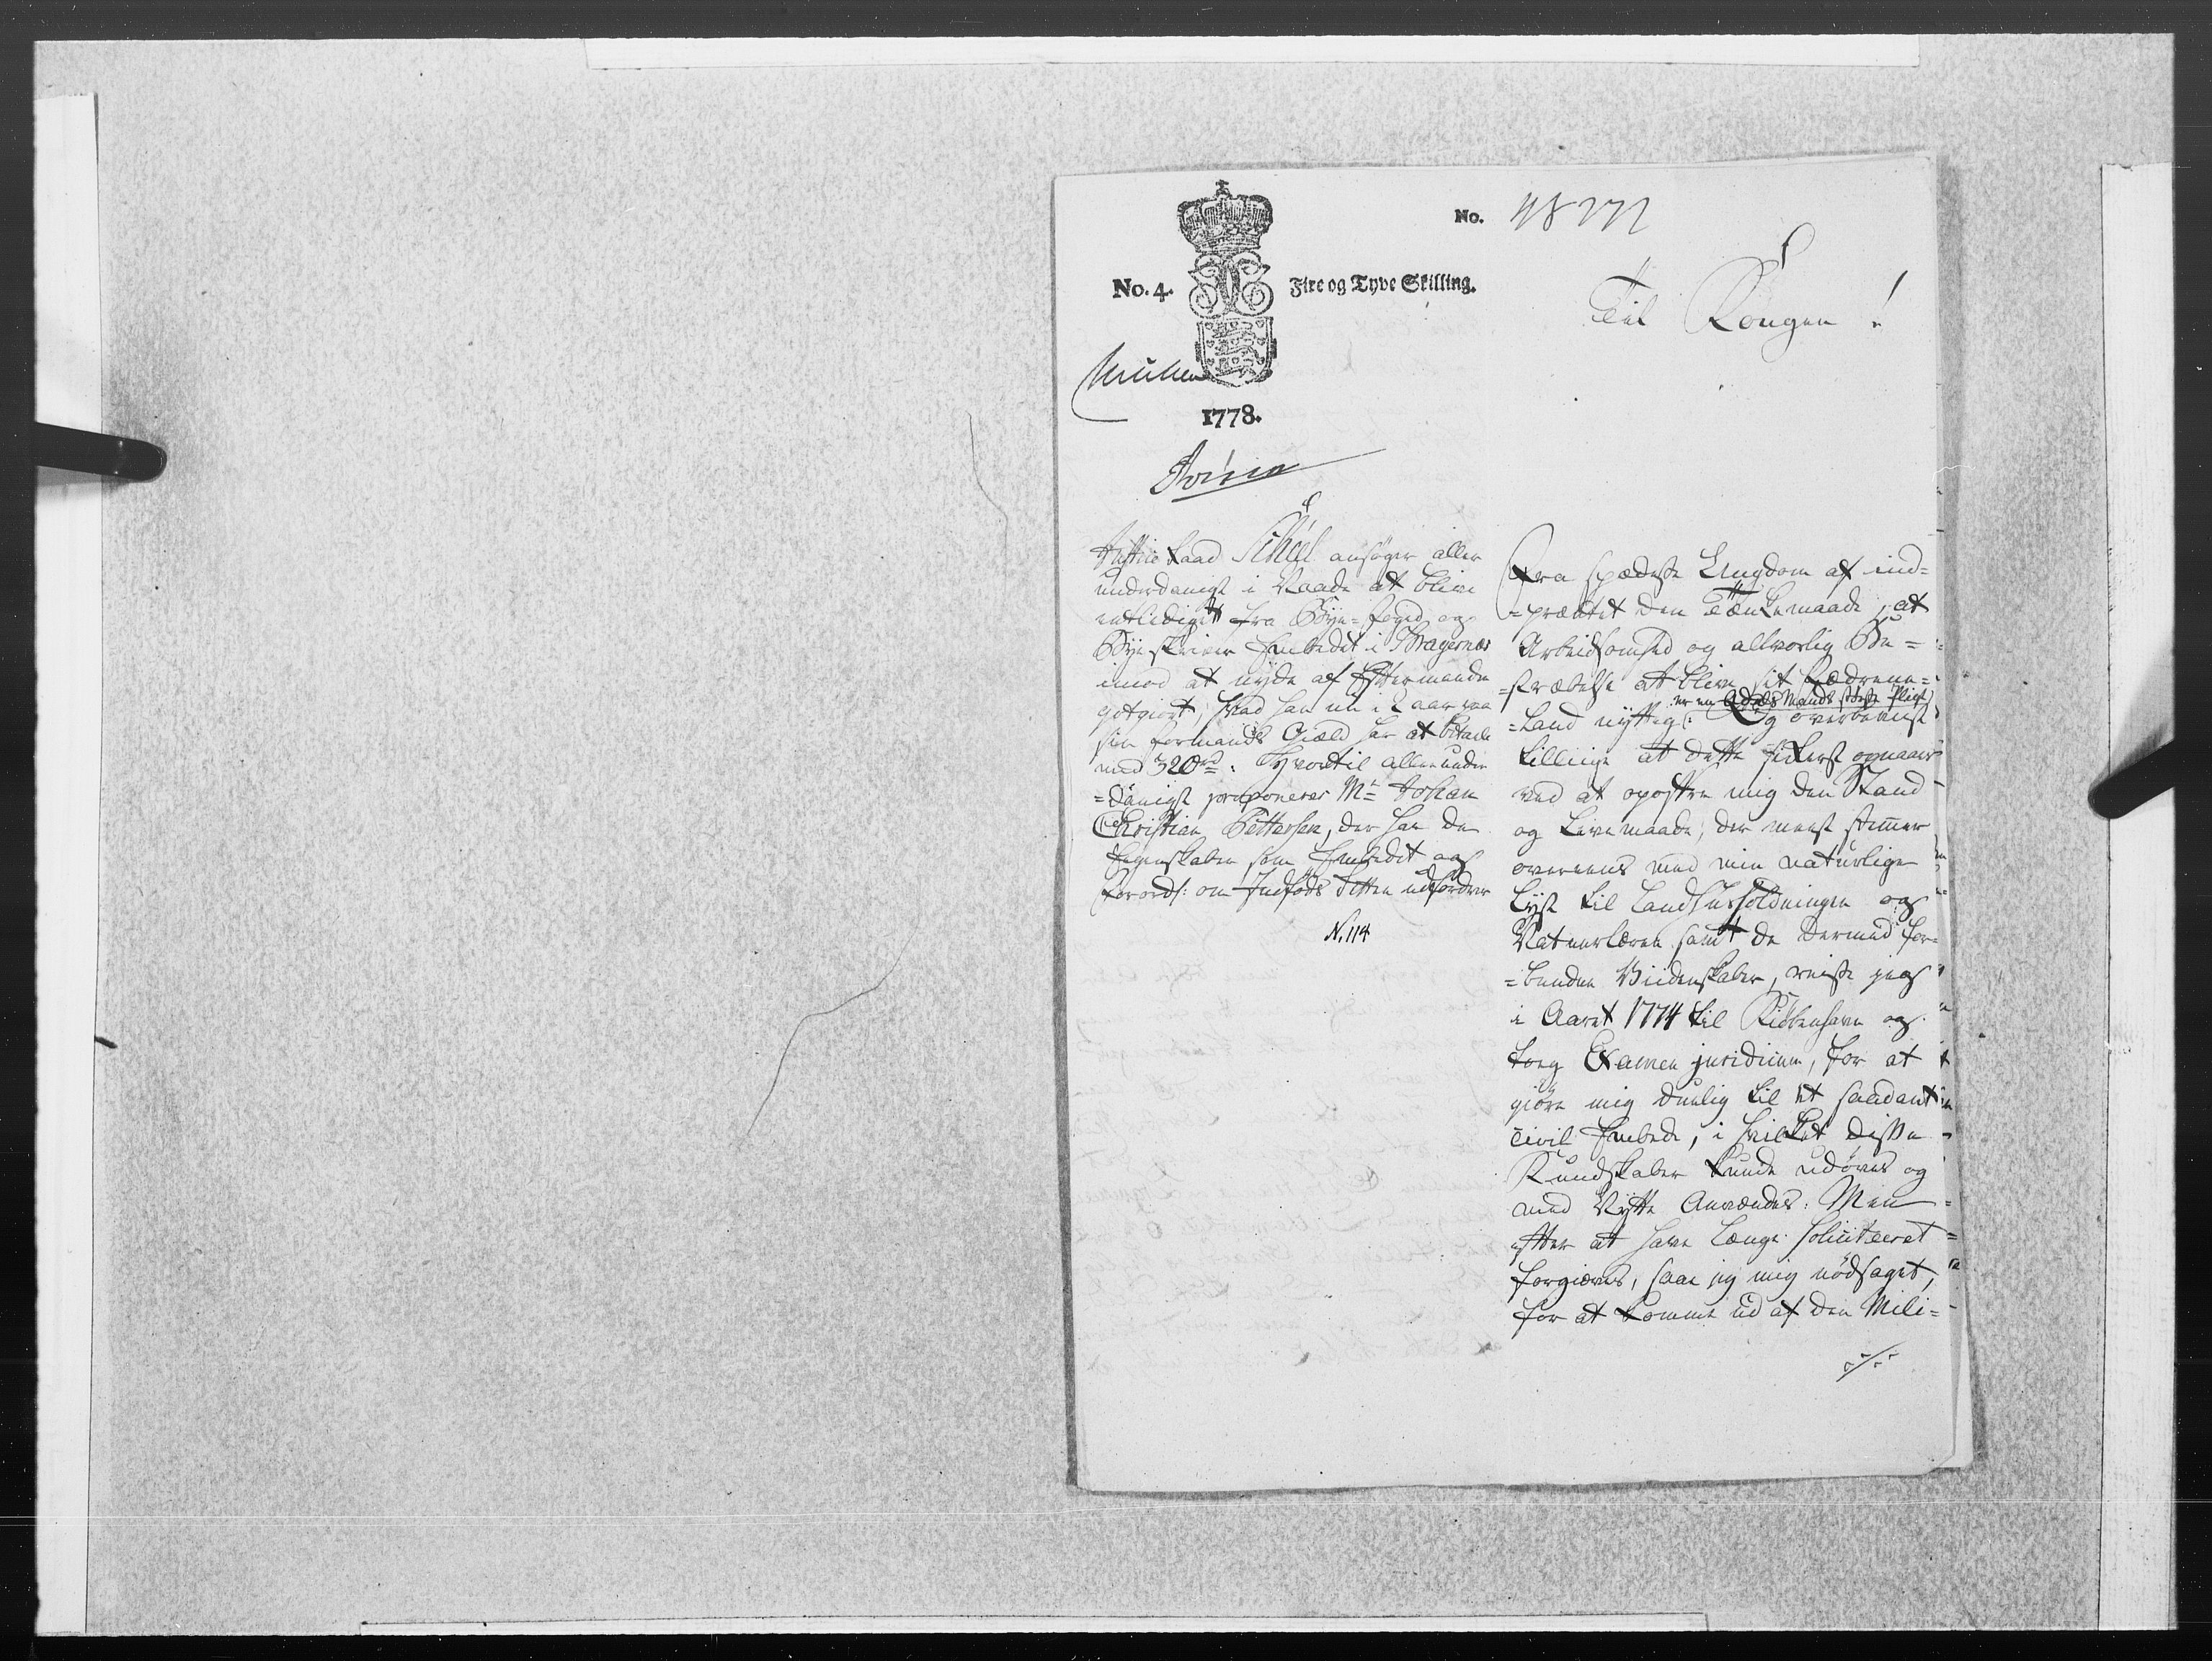 No. 48772
No. 4.
Fire og Tyve Skilling.
Til Kongen!
1778.
Justice Raad Scheel ansøger aller
underdanigst i Naade at blive
entlediget fra Bye-foged og
Byeskriver Embedet i Bragernæs
imod at nyde af Eftermanden
gotgiort, hvad han nu i 2 aar paa
sin formands Giæld har at betale
med 320 rd. Hvortil allerunder
=danigst proponeres Mr. Johan
Christian Pettersen, der har de
Egenskaber som Embedet og
Forord: om Indføds Retten udfordrer
N. 114
Fra spædeste Ungdom af ind=
=præntet den Tænkemaade, at
Arbeidsomhed og allvorlig Be=
=stræbelse at blive sit Fædrene=
er en Adels Mands største Pligt
=Land nyttig: Og overbeviist
tillige at dette sikkerst opnaaes
ved at opoffre mig den Stand
og Levemaade, der meest stemmer
overeens med min naturlige
Lyst til Landhuusholdningen og
Naturlæren samt de dermed for=
=bundne Viidenskaber, reiste jeg
i Aaret 1774 til Kiøbenhavn og
tog Examen juridicum, for at
giøre mig duelig til et saadant
Civil Embede, i hvilket disse
Kundskaber kunde udøves og
med Nytte Anvendes: Men
efter at have længe soliciteret
forgieves, saae jeg mig nødsaget,
for at komme ud af den Mili=